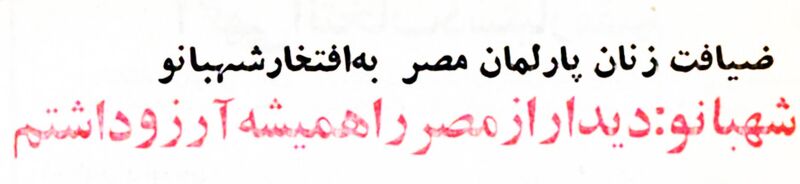 ضیافت زنان پارلمان مصر به‌افتخارشهبانو
شهبانو:دیدار از مصر را همیشه آرزو داشتم